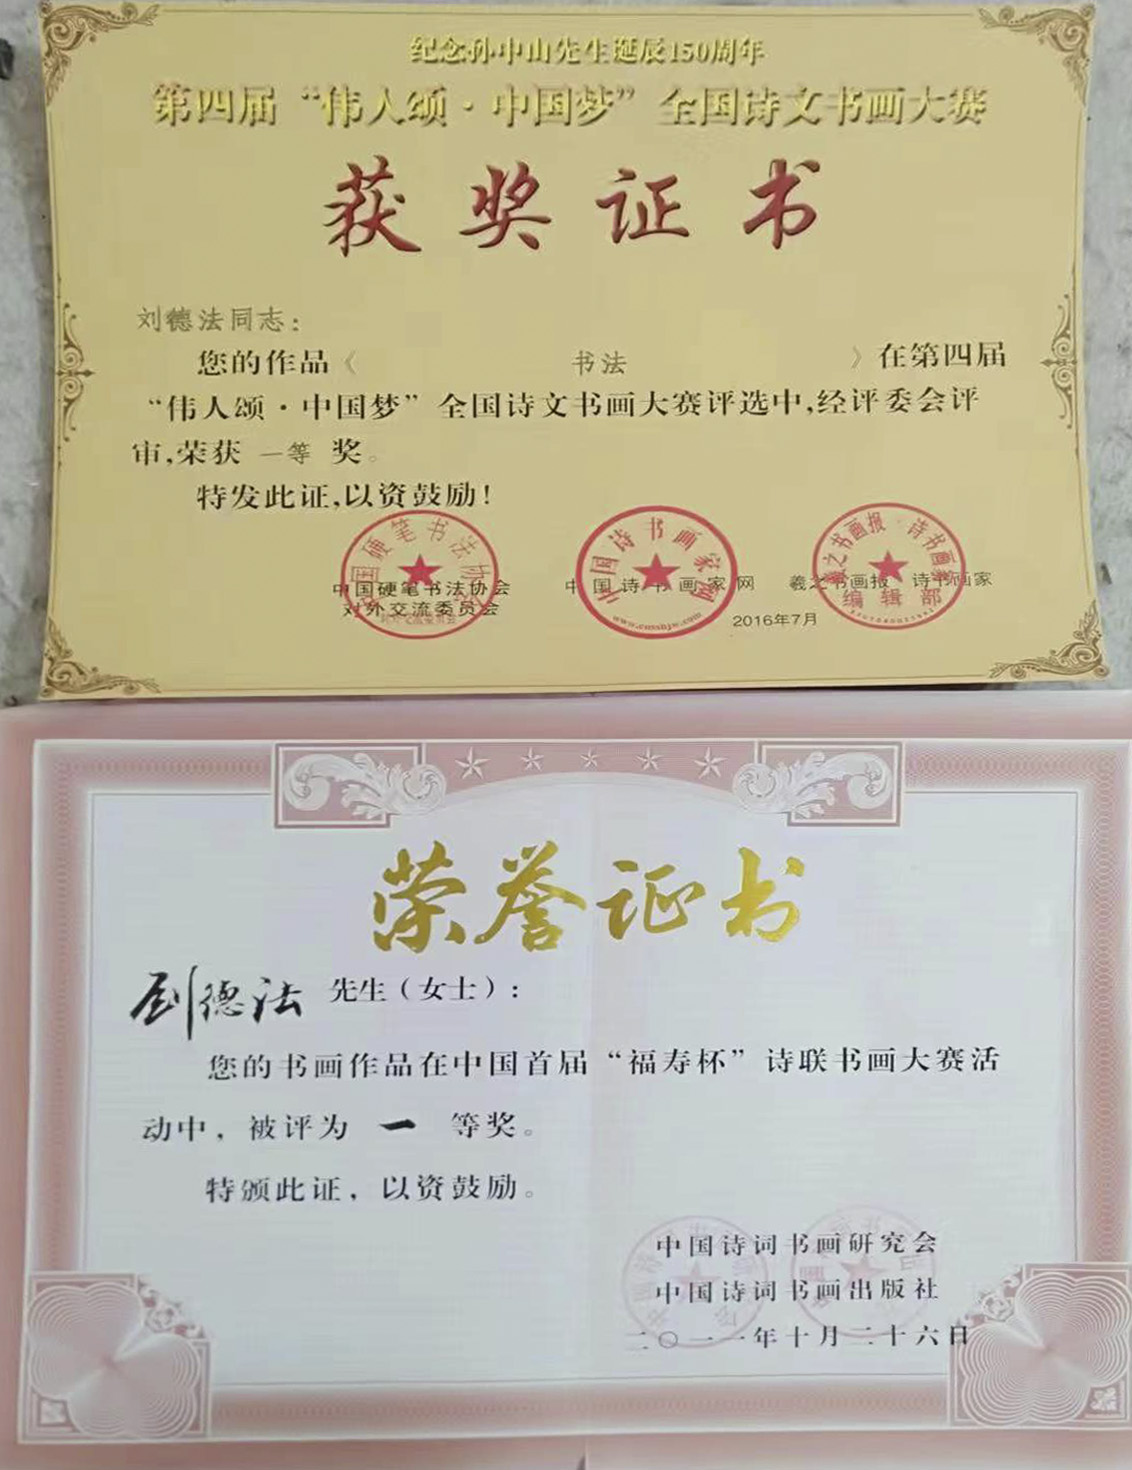 纪念孙中山先生诞辰150周年
第四届“伟人颂·中国梦”全国诗文书画大赛
获奖证书
刘德法同志:
您的作品《 书法 》在第四届
“伟人颂·中国梦”全国诗文书画大赛评选中,经评委会评
审,荣获 一等 奖。
特发此证,以资鼓励!
中国硬笔书法协会
对外交流委员会
中国诗书画家网
羲之书画报 诗书画家
2016年7月
中国硬笔书法协会
对外交流委员会
中国诗书画家网
羲之书画报·诗书画家
编辑部
荣誉证书
刘德法 先生(女士):
您的书画作品在中国首届“福寿杯”诗联书画大赛活
动中,被评为 一 等奖。
特颁此证,以资鼓励。
中国诗词书画研究会
中国诗词书画出版社
二〇一一年十月二十六日